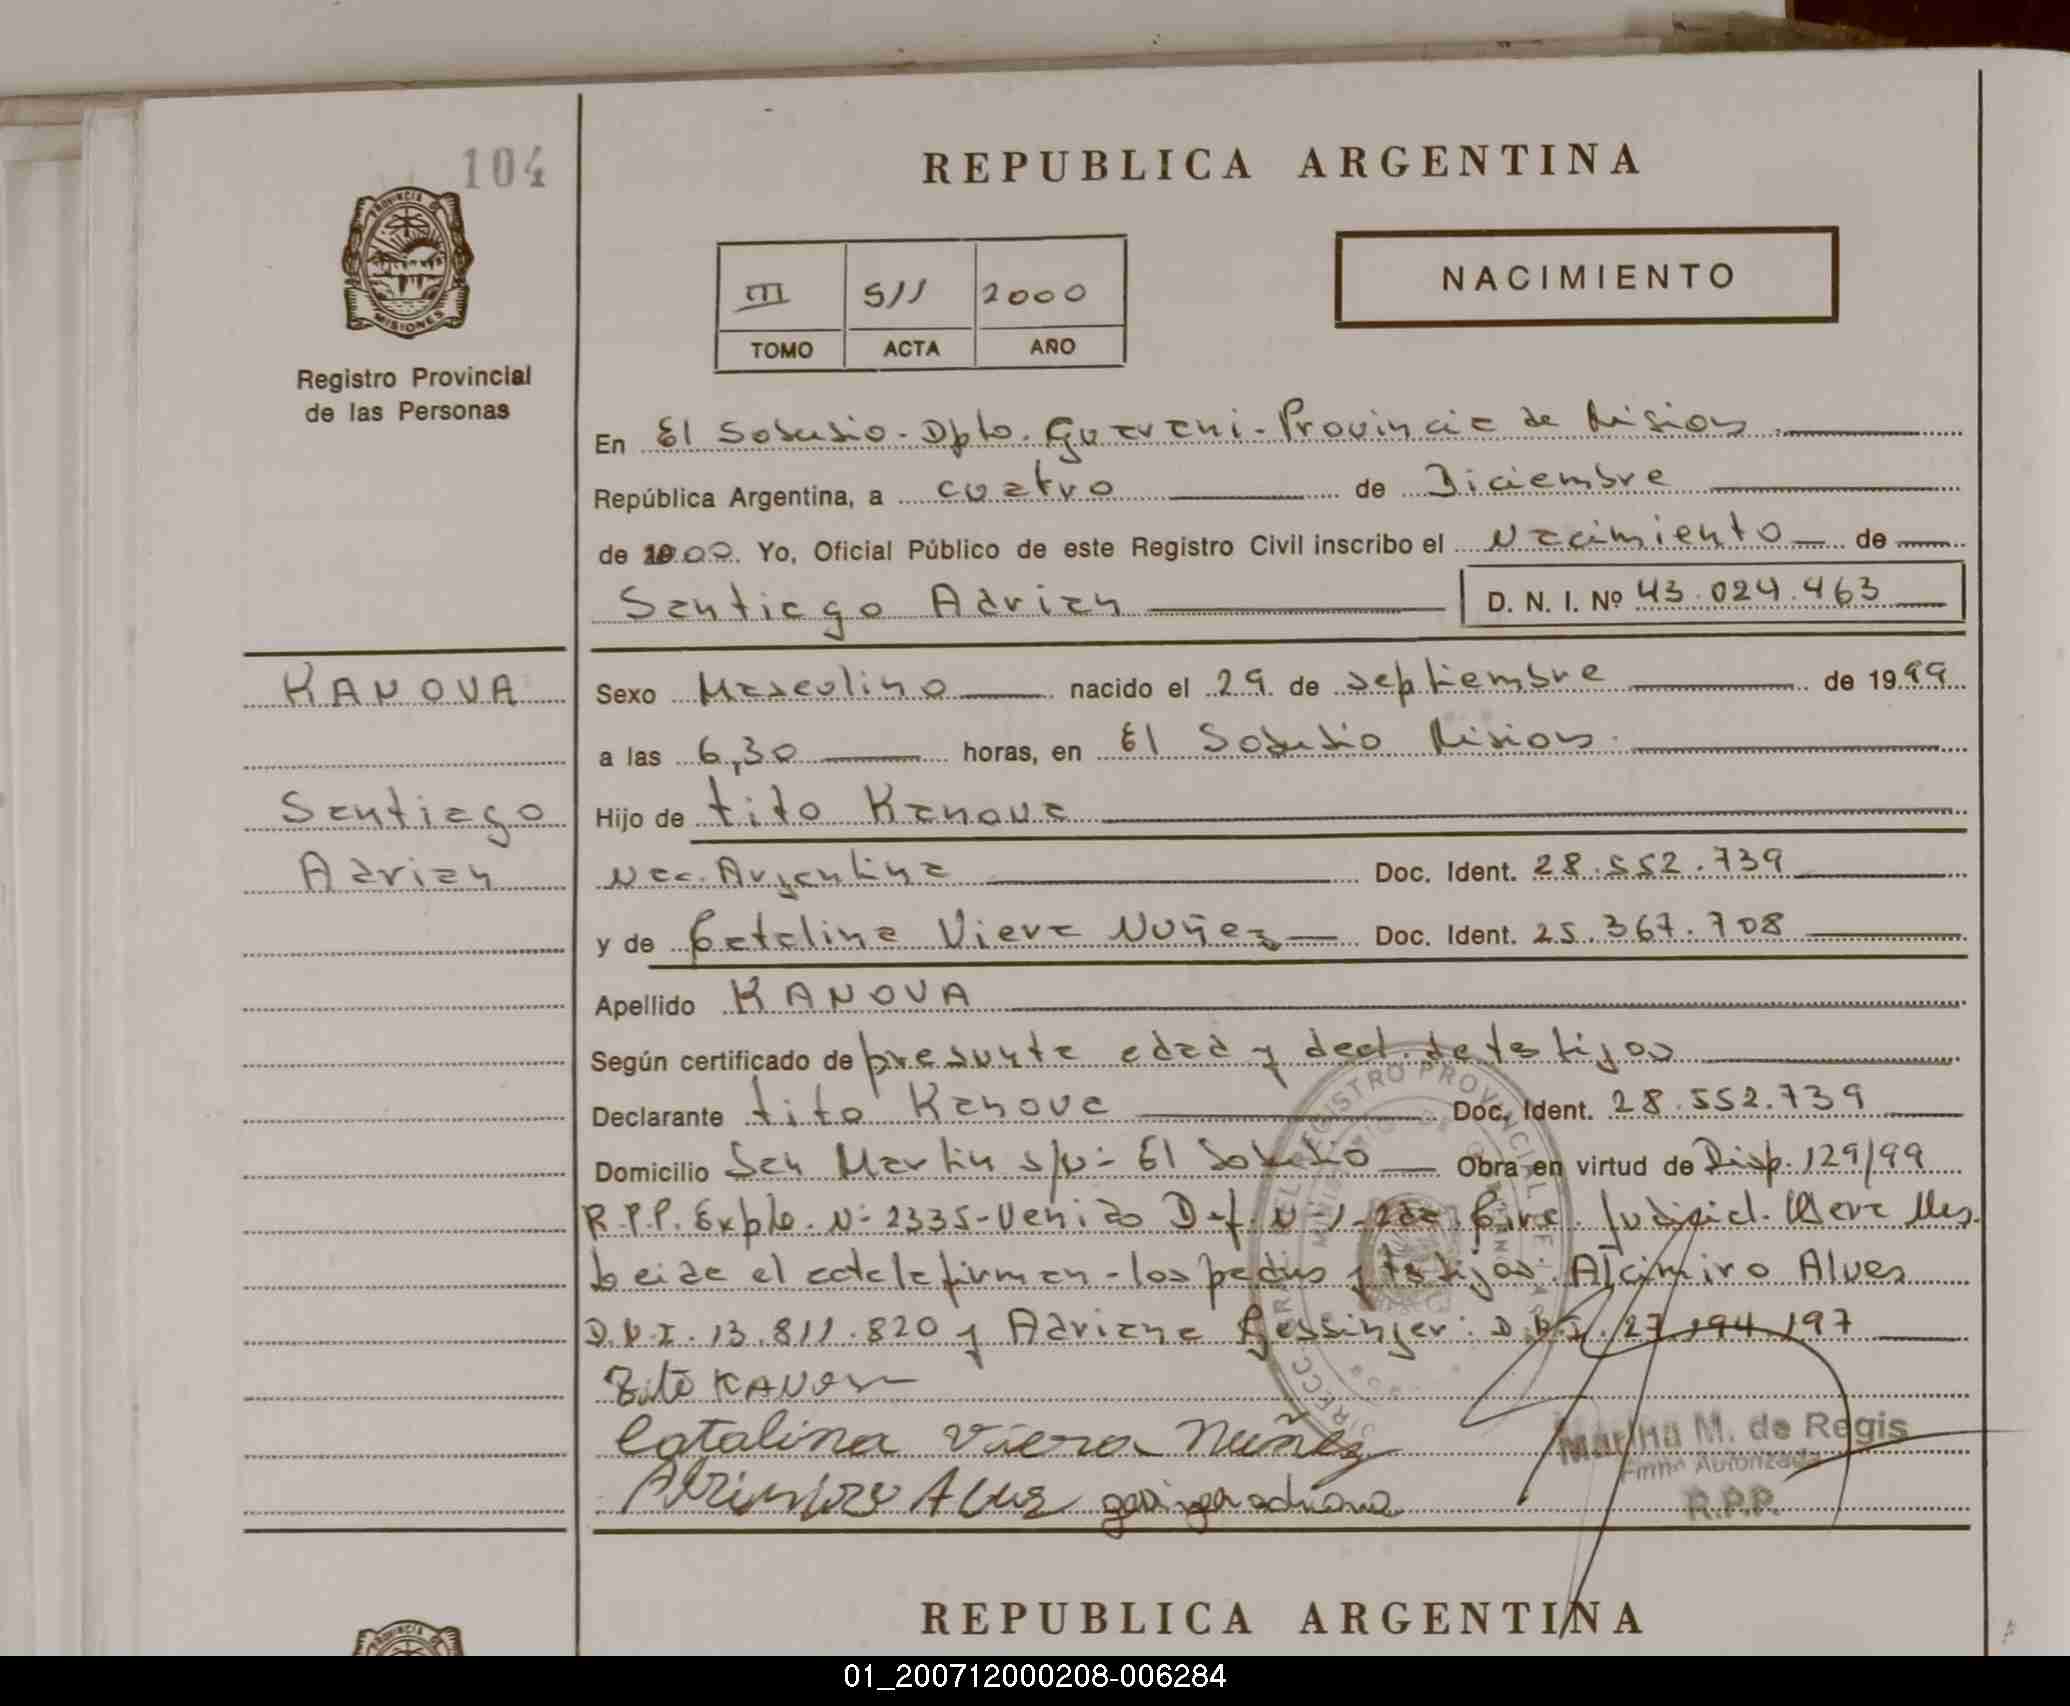 104
REPUBLICA ARGENTINA
PROVINCIA DE
MISIONES
Registro Provincial
de las Personas
III 511 2000
TOMO ACTA AÑO
NACIMIENTO
En El Soberbio - Dpto. Guarani - Provincia de Misiones
República Argentina, a cuatro de Diciembre
de 2000. Yo, Oficial Público de este Registro Civil inscribo el Nacimiento de
Santiago Adrian D. N. I. Nº 43.024.463
KANOVA
Santiago
Adrian
Sexo Masculino nacido el 29 de septiembre de 1999
a las 6,30 horas, en El Soberbio Misiones
Hijo de tito Kanova
Nac. Argentina Doc. Ident. 28.552.739
y de Catalina Viera Nuñez Doc. Ident. 25.367.708
Apellido KANOVA
Según certificado de presunta edad y decl. de testigos
Declarante tito Kanova Doc. Ident. 28.552.739
Domicilio San Martin s/n - El Soberbio Obra en virtud de Disp. 129/99
R.P.P. Expte. Nº 2335 - Venido Def. Nº 1 - 2da. Circ. Judicial.
leida el acta la firman - los padres y testigos: Alcimiro Alves
D.N.I. 13.811.820 y Adriana Gessinger: D.N.I. 27.194.197
Tito KANOVA
Catalina Viera Nuñez
Alcimiro Alves gessinger adriana
Martha M. de Regis
Firma Autorizada
R.P.P.
REPUBLICA ARGENTINA
01_200712000208-006284